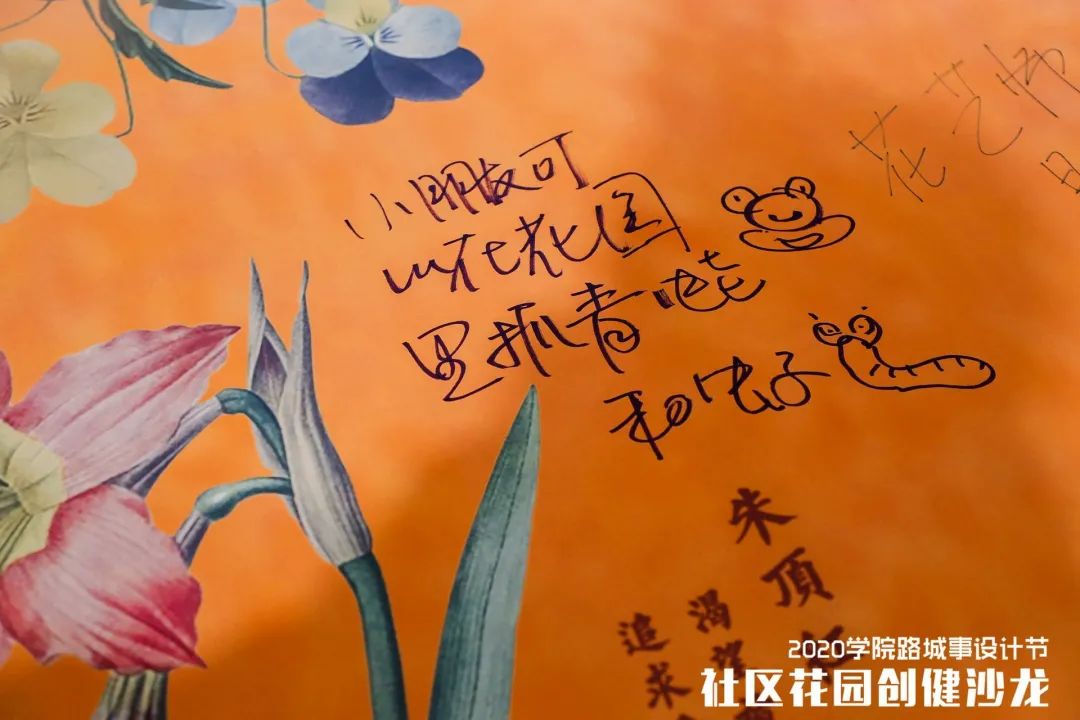 小朋友可
以在花园
里抓青蛙
和虫子
花艺
朱頂
渴望
追求
2020学院路城事设计节
社区花园创健沙龙